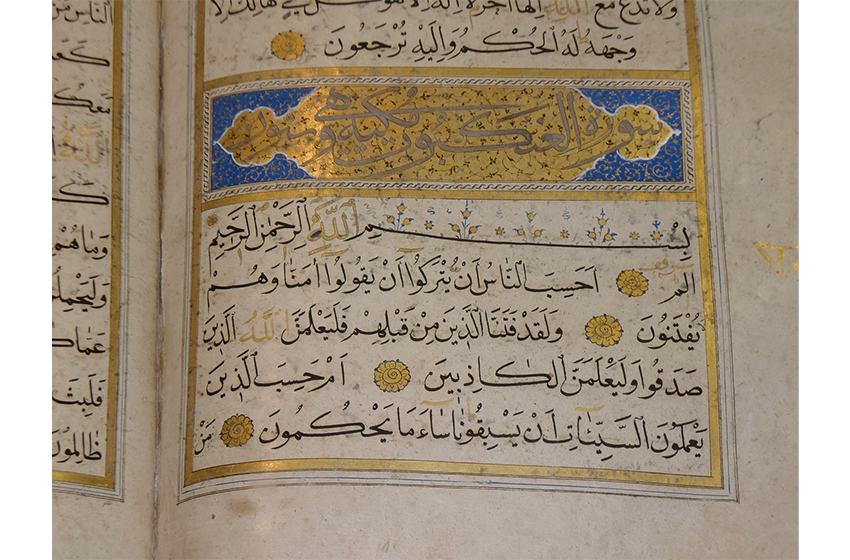 وَلَا تَدْعُ مَعَ اللهِ اِلٰهًا اٰخَرَ لَا اِلٰهَ اِلَّا هُوَ كُلُّ شَيْءٍ هَالِكٌ اِلَّا
وَجْهَهُ لَهُ الْحُكْمُ وَاِلَيْهِ تُرْجَعُونَ
سورة العنكبوت مكية وهي ستون
بِسْمِ اللهِ الرَّحْمٰنِ الرَّحِيمِ
الم اَحَسِبَ النَّاسُ اَنْ يُتْرَكُوا اَنْ يَقُولُوا اٰمَنَّا وَهُمْ
يُفْتَنُونَ وَلَقَدْ فَتَنَّا الَّذِينَ مِنْ قَبْلِهِمْ فَلَيَعْلَمَنَّ اللهُ الَّذِينَ
صَدَقُوا وَلَيَعْلَمَنَّ الْكَاذِبِينَ اَمْ حَسِبَ الَّذِينَ
يَعْمَلُونَ السَّيِّـَٔاتِ اَنْ يَسْبِقُونَا سَاءَ مَا يَحْكُمُونَ مَنْ
النَّاسِ مَنْ
مَعَكُمْ
اللهُ
وَمَا هُمْ
وَلَيَحْمِلُنَّ
عَمَّا كَا
فَلَبِثَ
ظَالِمُونَ